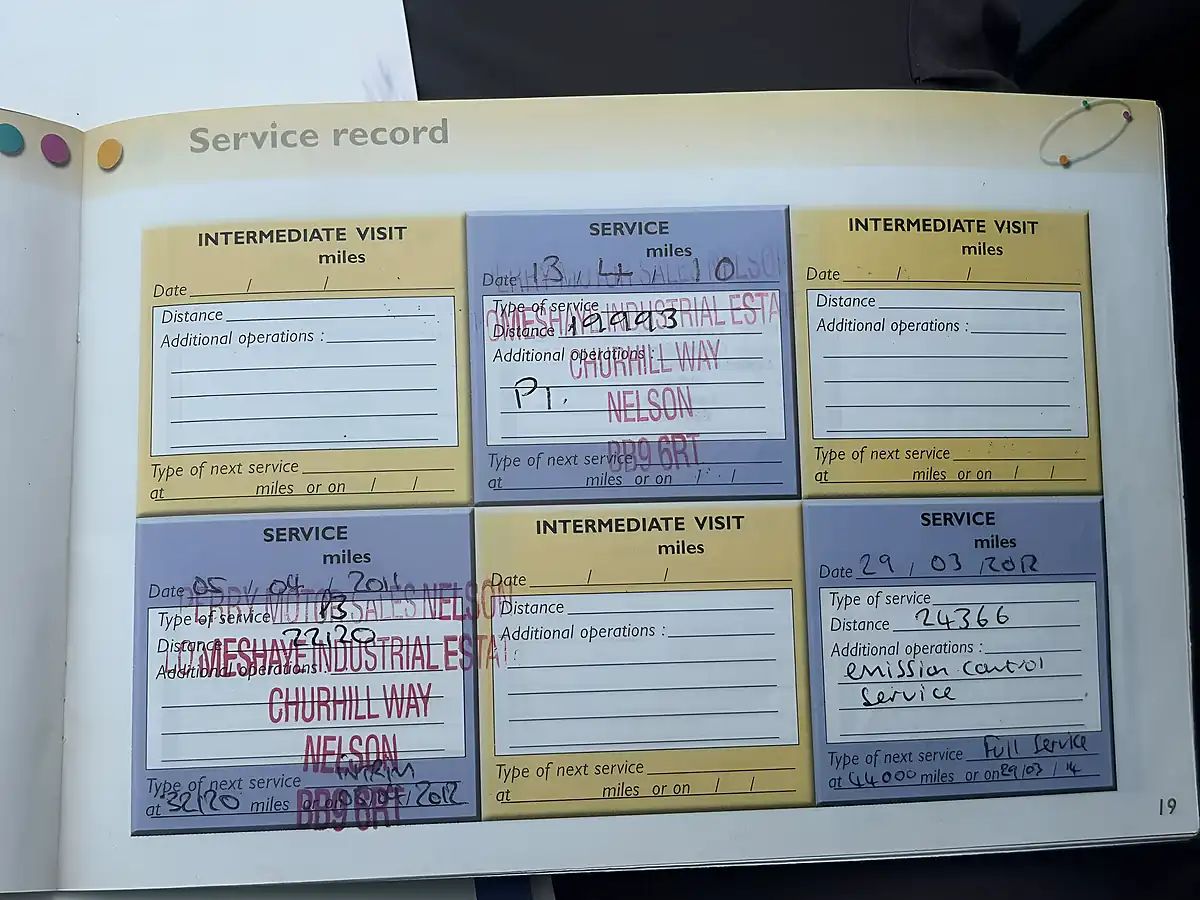 Service record
INTERMEDIATE VISIT
miles
Date / /
Distance
Additional operations :
Type of next service
at miles or on / /
SERVICE
miles
Date 13 / 4 / 10
Type of service
Distance 19993
Additional operations :
PI.
Type of next service
at miles or on / /
MOTOR SALES NELSON
INDUSTRIAL ESTA
CHURHILL WAY
NELSON
BB9 6RT
INTERMEDIATE VISIT
miles
Date / /
Distance
Additional operations :
Type of next service
at miles or on / /
SERVICE
miles
Date 05 / 04 / 2011
Type of service
Distance 22120
Additional operations :
Type of next service INTRIM
at 32120 miles or on /2012
PERRY MOTOR SALES NELSON
LOMESHAYE INDUSTRIAL ESTATE
CHURHILL WAY
NELSON
BB9 6RT
INTERMEDIATE VISIT
miles
Date / /
Distance
Additional operations :
Type of next service
at miles or on / /
SERVICE
miles
Date 29 / 03 / 2012
Type of service
Distance 24366
Additional operations :
emission control
service
Type of next service Full Service
at 44000 miles or on 29/03 / 14
19